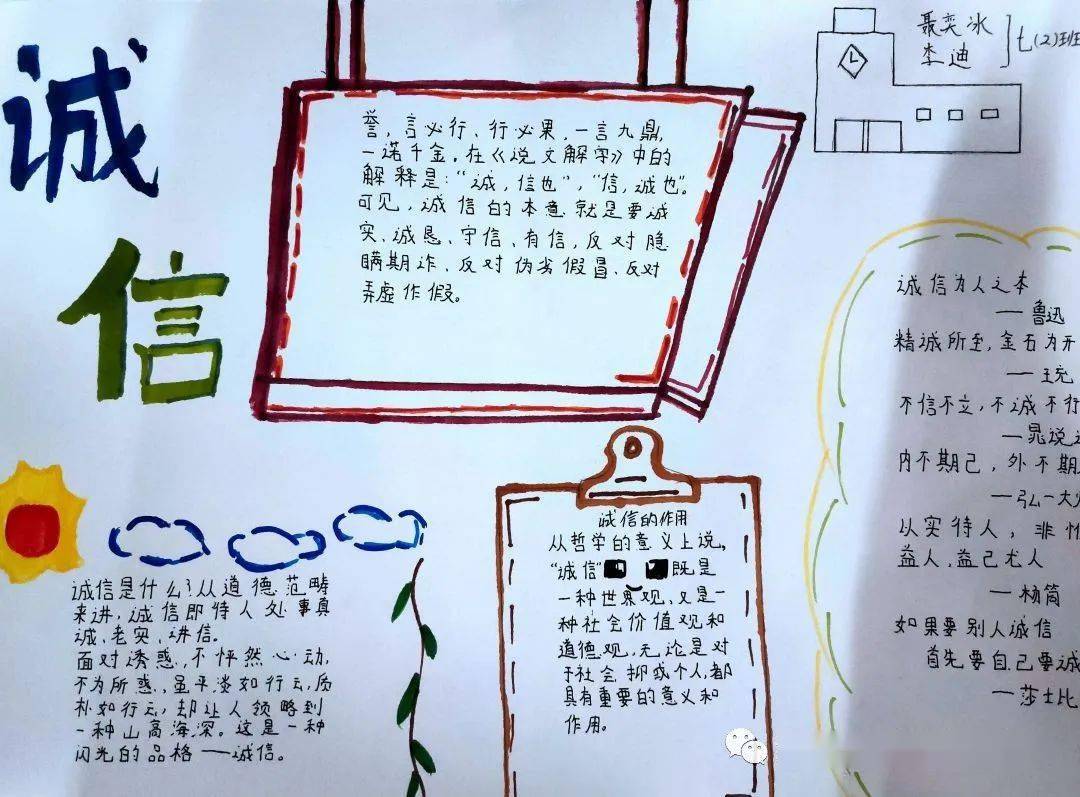 诚
信
聂奕冰
李迪
七(2)班
誉，言必行、行必果，一言九鼎，
一诺千金。在《说文解字》中的
解释是："诚，信也"，"信，诚也"。
可见，诚信的本意就是要诚
实、诚恳、守信、有信，反对隐
瞒期诈、反对伪劣假冒、反对
弄虚作假。
诚信是什么？从道德范畴
来讲，诚信即待人处事真
诚、老实、讲信。
面对诱惑，不怦然心动，
不为所惑，虽平淡如行云，质
朴如行云，却让人领略到
一种山高海深。这是一种
闪光的品格——诚信。
诚信的作用
从哲学的意义上说，
"诚信"既是
一种世界观，又是一
种社会价值观和
道德观，无论是对
于社会抑或个人，都
具有重要的意义和
作用。
诚信为人之本
—鲁迅
精诚所至，金石为开
—王充
不信不立，不诚不行
—晁说
内不期己，外不期
—弘一大
以实待人，非惟
益人，益己尤人
—杨简
如果要别人诚信
首先要自己要诚
—莎士比